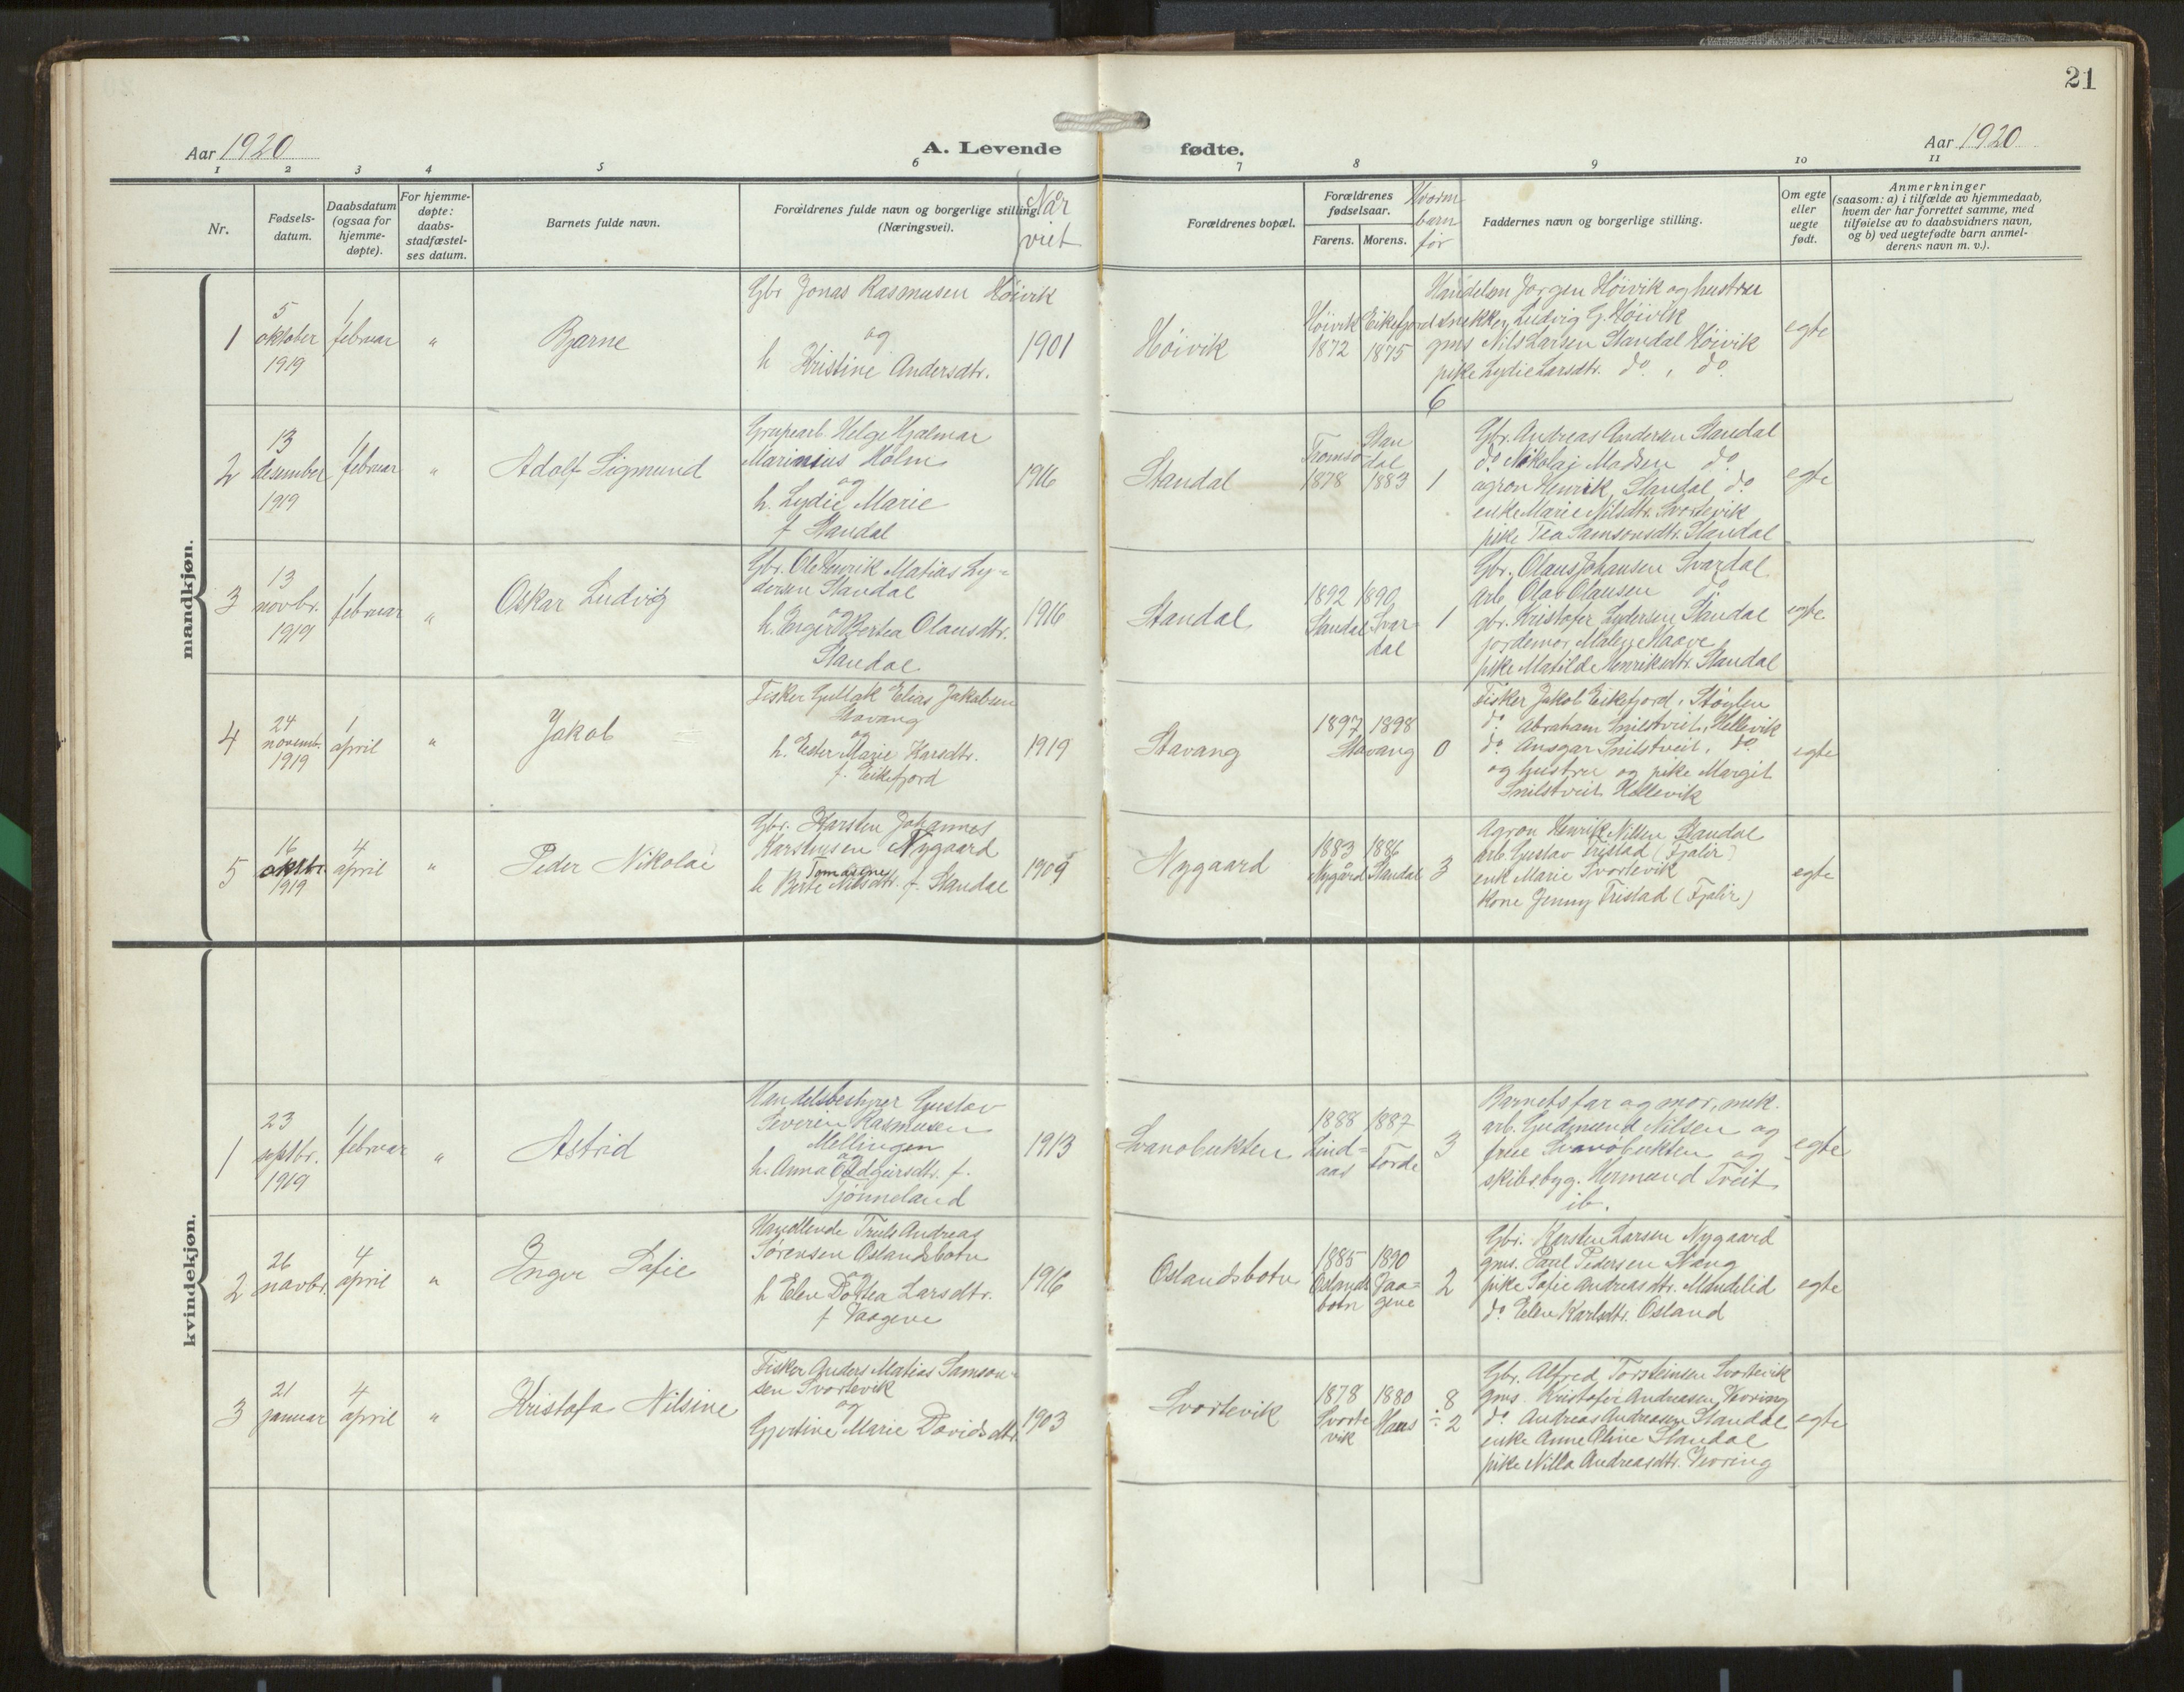 21
Aar 1920
A. Levende fødte.
Aar 1920
1 2 3 4 5 6 7 8 9 10 11
Nr.
Fødsels-
datum.
Daabsdatum
(ogsaa for
hjemme-
døpte).
For hjemme-
døpte:
daabs-
stadfæstel-
ses datum.
Barnets fulde navn.
Forældrenes fulde navn og borgerlige stilling
(Næringsvei).
Når
viet
Forældrenes bopæl.
Forældrenes
fødselsaar.
Farens. Morens.
Hvorm
barn
før
Faddernes navn og borgerlige stilling.
Om egte
eller
uegte
født.
Anmerkninger
(saasom: a) i tilfælde av hjemmedaab,
hvem der har forrettet samme, med
tilføielse av to daabsvidners navn,
og b) ved uegtefødte barn anmel-
derens navn m. v.).
mandkjøn.
1
5
oktober
1919
1
februar
"
Bjarne
Gbr Jonas Rasmusen Høivik
og
h Kristine Andersdtr.
1901
Høivik
Høivik
1872
Eikefjord
1875
6
Handelsm Jørgen Høivik og hustru
snekker Ludvig G. Høivik
gms Nils Larsen Standal Høivik
pike Lydie Larsdtr. do , do
egte
2
13
desember
1919
1
februar
"
Adolf Sigmund
Grupearb. Helge Hjalmar
Marinius Holm
og
h. Lydie Marie
f Standal
1916
Standal
Tromsø
1878
Stan
dal
1883
1
Gbr. Andreas Andersen Standal
do Nikolai Madsen do
agron Henrik Standal do
enke Marie Nilsdtr. Svortevik
pike Tea Samsonsdtr. Standal
egte
3
13
novbr.
1919
1
februar
"
Oskar Ludvig
Gbr. Ole Henrik Matias Ly=
dersen Standal
og
h. Inger Bertea Olausdtr.
Standal
1916
Standal
1892
Standal
1890
Svar
dal
1
Gbr. Olaus Johansen Svardal
arb Olav Olausen do
gbr. Kristofer Lydersen Standal
jordemor Malene Haave
pike Matilde Henriksdtr. Standal
egte
4
24
novemb.
1919
1
april
"
Jakob
Fisker Gullak Elias Jakobsen
Stavang
og
h. Ester Marie Karsdtr.
f. Eikefjord
1919
Stavang
1897 1898
Stavang
0
Fisker Jakob Eikefjord, Støylen
do Abraham Snilstveit, Hellevik
do Ansgar Snilstveit, do
og hustru og pike Margit
Snilstveit Hellevik
egte
5
16
oktbr.
1919
4
april
"
Peder Nikolai
Gbr. Karsten Johannes
Karstensen Nygaard
Tomasene
h Berte Nilsdtr. f. Standal
1909
Nygaard
1883
Nygård
1886
Standal
3
Agron Henrik Nilsen Standal
arb. Gustav Tristad (Fjalir)
enk Marie Svortevik
Kone Jenny Tristad (Fjalir)
egte
kvindekjøn.
1
23
septbr.
1919
1
februar
"
Astrid
Handelsbestyrer Gustav
Severin Rasmusen
Mellingen
og
h. Anna Oldgeirsdtr. f.
Tjønneland
1913
Svanøbukten
1888
Lind=
aas
1887
Førde
3
Barnets far og mor, mek.
arb. Gudmund Nilsen og
frue Svanøbukten og
skibsbyg. Hermund Tveit
ib.
egte
2
26
novbr.
4
april
"
Inger Sofie
Handlende Truls Andreas
Sørensen Oslandsbotn
og
h Elen Dortea Larsdtr.
f Vaagene
1916
Oslandsbotn
1885
Oslands
botn
1890
Vaa=
gene
2
Gbr. Karsten Larsen Nygaard
gms. Paul Pedersen Stang
pike Sofie Andreasdtr. Mandelid
do Elen Karlsdtr. Osland
egte
3
21
januar
4
april
"
Kristofa Nilsine
Fisker Anders Matias Samson-
sen Svortevik
og
Gjertine Marie Davidsdtr.
1903
Svortevik
1878
Svorte
vik
1880
Haus
8
÷ 2
Gbr. Alfred Torsteinsen Svortevik
gms. Kristofer Andreasen Vevring
do Andreas Andreasen Standal
enke Anne Oline Standal
pike Nilla Andreasdtr. Vevring
egte